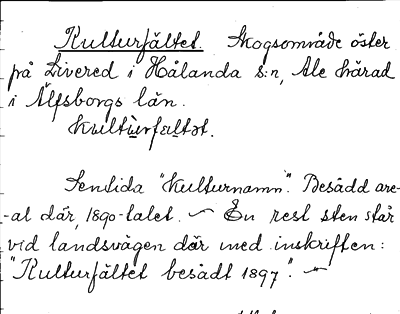 Kulturfältet. Skogsområde öster
på Livered i Hålanda s:n, Ale härad
i Älfsborgs län.
kultùrfæltət.
Sentida "kulturnamn". Besådd are-
-al där, 1890-talet. ~ En rest sten står
vid landsvägen där med inskriften:
"Kulturfältet besådt 1897". ~